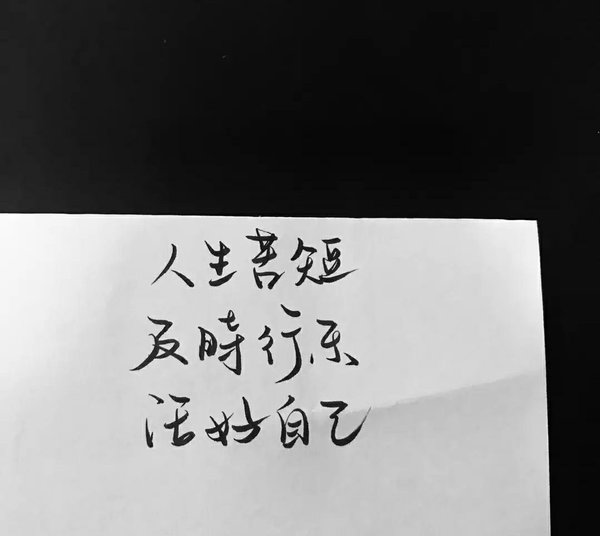 人生苦短
及時行乐
活好自己